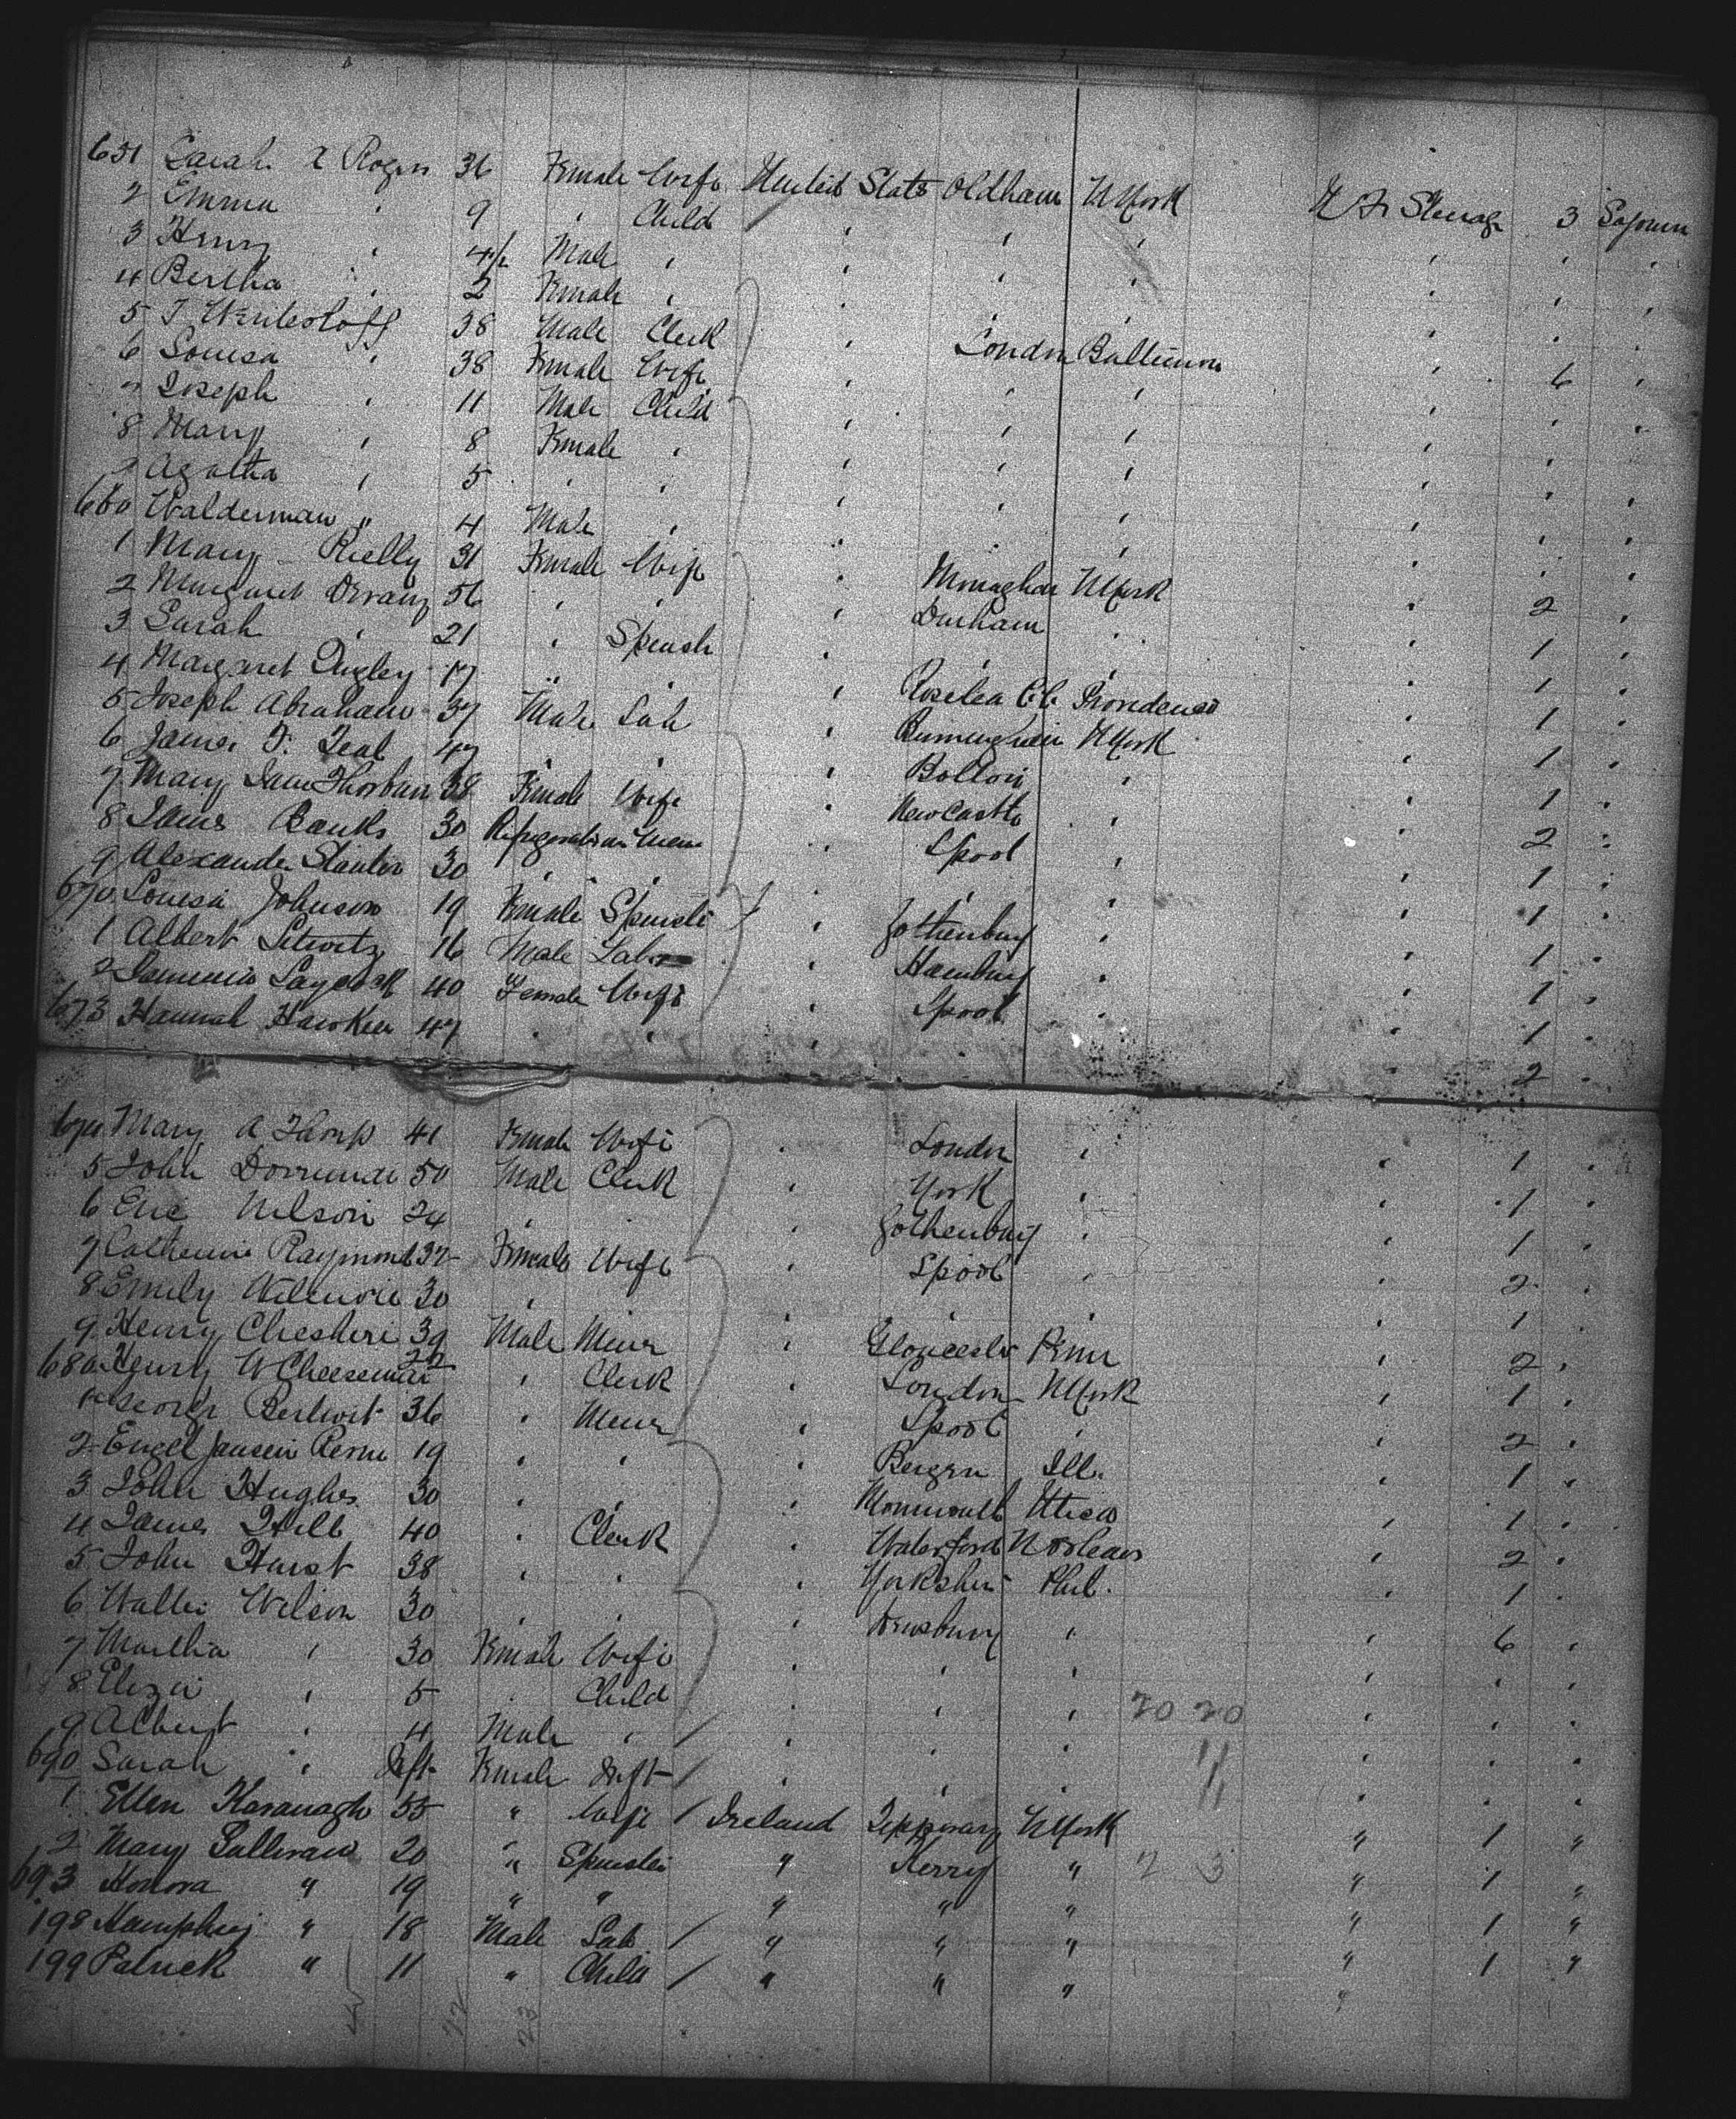 651 Sarah A Rogers 36 Female Wife United States Oldham N York Steerage 3 Sojourn
2 Emma " 9 " Child " " "
3 Henry " 4½ Male " " " "
4 Bertha " 2 Female " " " "
5 38 Male Clerk " London Baltimore 6 "
6 Louisa " 38 Female Wife " " "
7 Joseph " 11 Male Child " " "
8 Mary " 8 Female " " " "
9 Agatha " 5 " " " " "
660 Walderman " 4 Male " " " "
1 Mary Rielly 31 Female Wife " Monaghan N York 2 "
2 Margaret 56 " " " Durham " 1 "
3 Sarah " 21 " Spinster " " " 1 "
4 Margaret Quigley 17 " " " Roslea Providence 1 "
5 Joseph Abraham 37 Male Lab " Birmingham N York 1 "
6 James F. Teal 47 " " " Bolton " 1 "
7 Mary Jane Thorburn 38 Female Wife " Newcastle " 2 "
8 James Banks 30 " Lpool " 1 "
9 Alexander 30 " " " " " " 1 "
670 Louisa Johnson 19 Female Spinster " Gothenburg " 1 "
1 Albert 16 Male Labor " Hamburg " 1 "
2 Laycock 40 Female Wife " Lpool " 1 "
673 Hannah Hawkes 47 " " " " " 2 "
674 Mary A 41 Female Wife " London " 1 "
5 John 50 Male Clerk " York " 1 "
6 Eric Nelson 24 " " " Gothenburg " 1 "
7 Catherine Raymond 32 Female Wife " Lpool " 2 "
8 Emily 30 " " " " " 1 "
9 Henry Cheshire 39 Male Miner " Gloucester Penn 2 "
680 Henry W Cheeseman 22 " Clerk " London N York 1 "
1 George 36 " Miner " Lpool " 2 "
2 Engel Jansen 19 " " " Bergen Ill. 1 "
3 John Hughes 30 " " " Monmouth Utica 1 "
4 James Hill 40 " Clerk " Waterford N Orleans 2 "
5 John Hurst 38 " " " Yorkshire Phil. 1 "
6 Walter Wilson 30 " " " Dewsbury " 6 "
7 Martha " 30 Female Wife " " " "
8 Eliza " 5 " Child " " " 20 20
9 Albert " 4 Male " " " "
690 Sarah " Inft Female Inft " " " 11
1 Ellen Kavanagh 55 " Wife Ireland Tipperary N York " 1 "
2 Mary Sullivan 20 " Spinster " Kerry " 2 3 " 1 "
693 Honora " 19 " " " " " " 1 "
198 Humphrey " 18 Male Lab " " " " 1 "
199 Patrick " 11 " Child " " " "
22 23